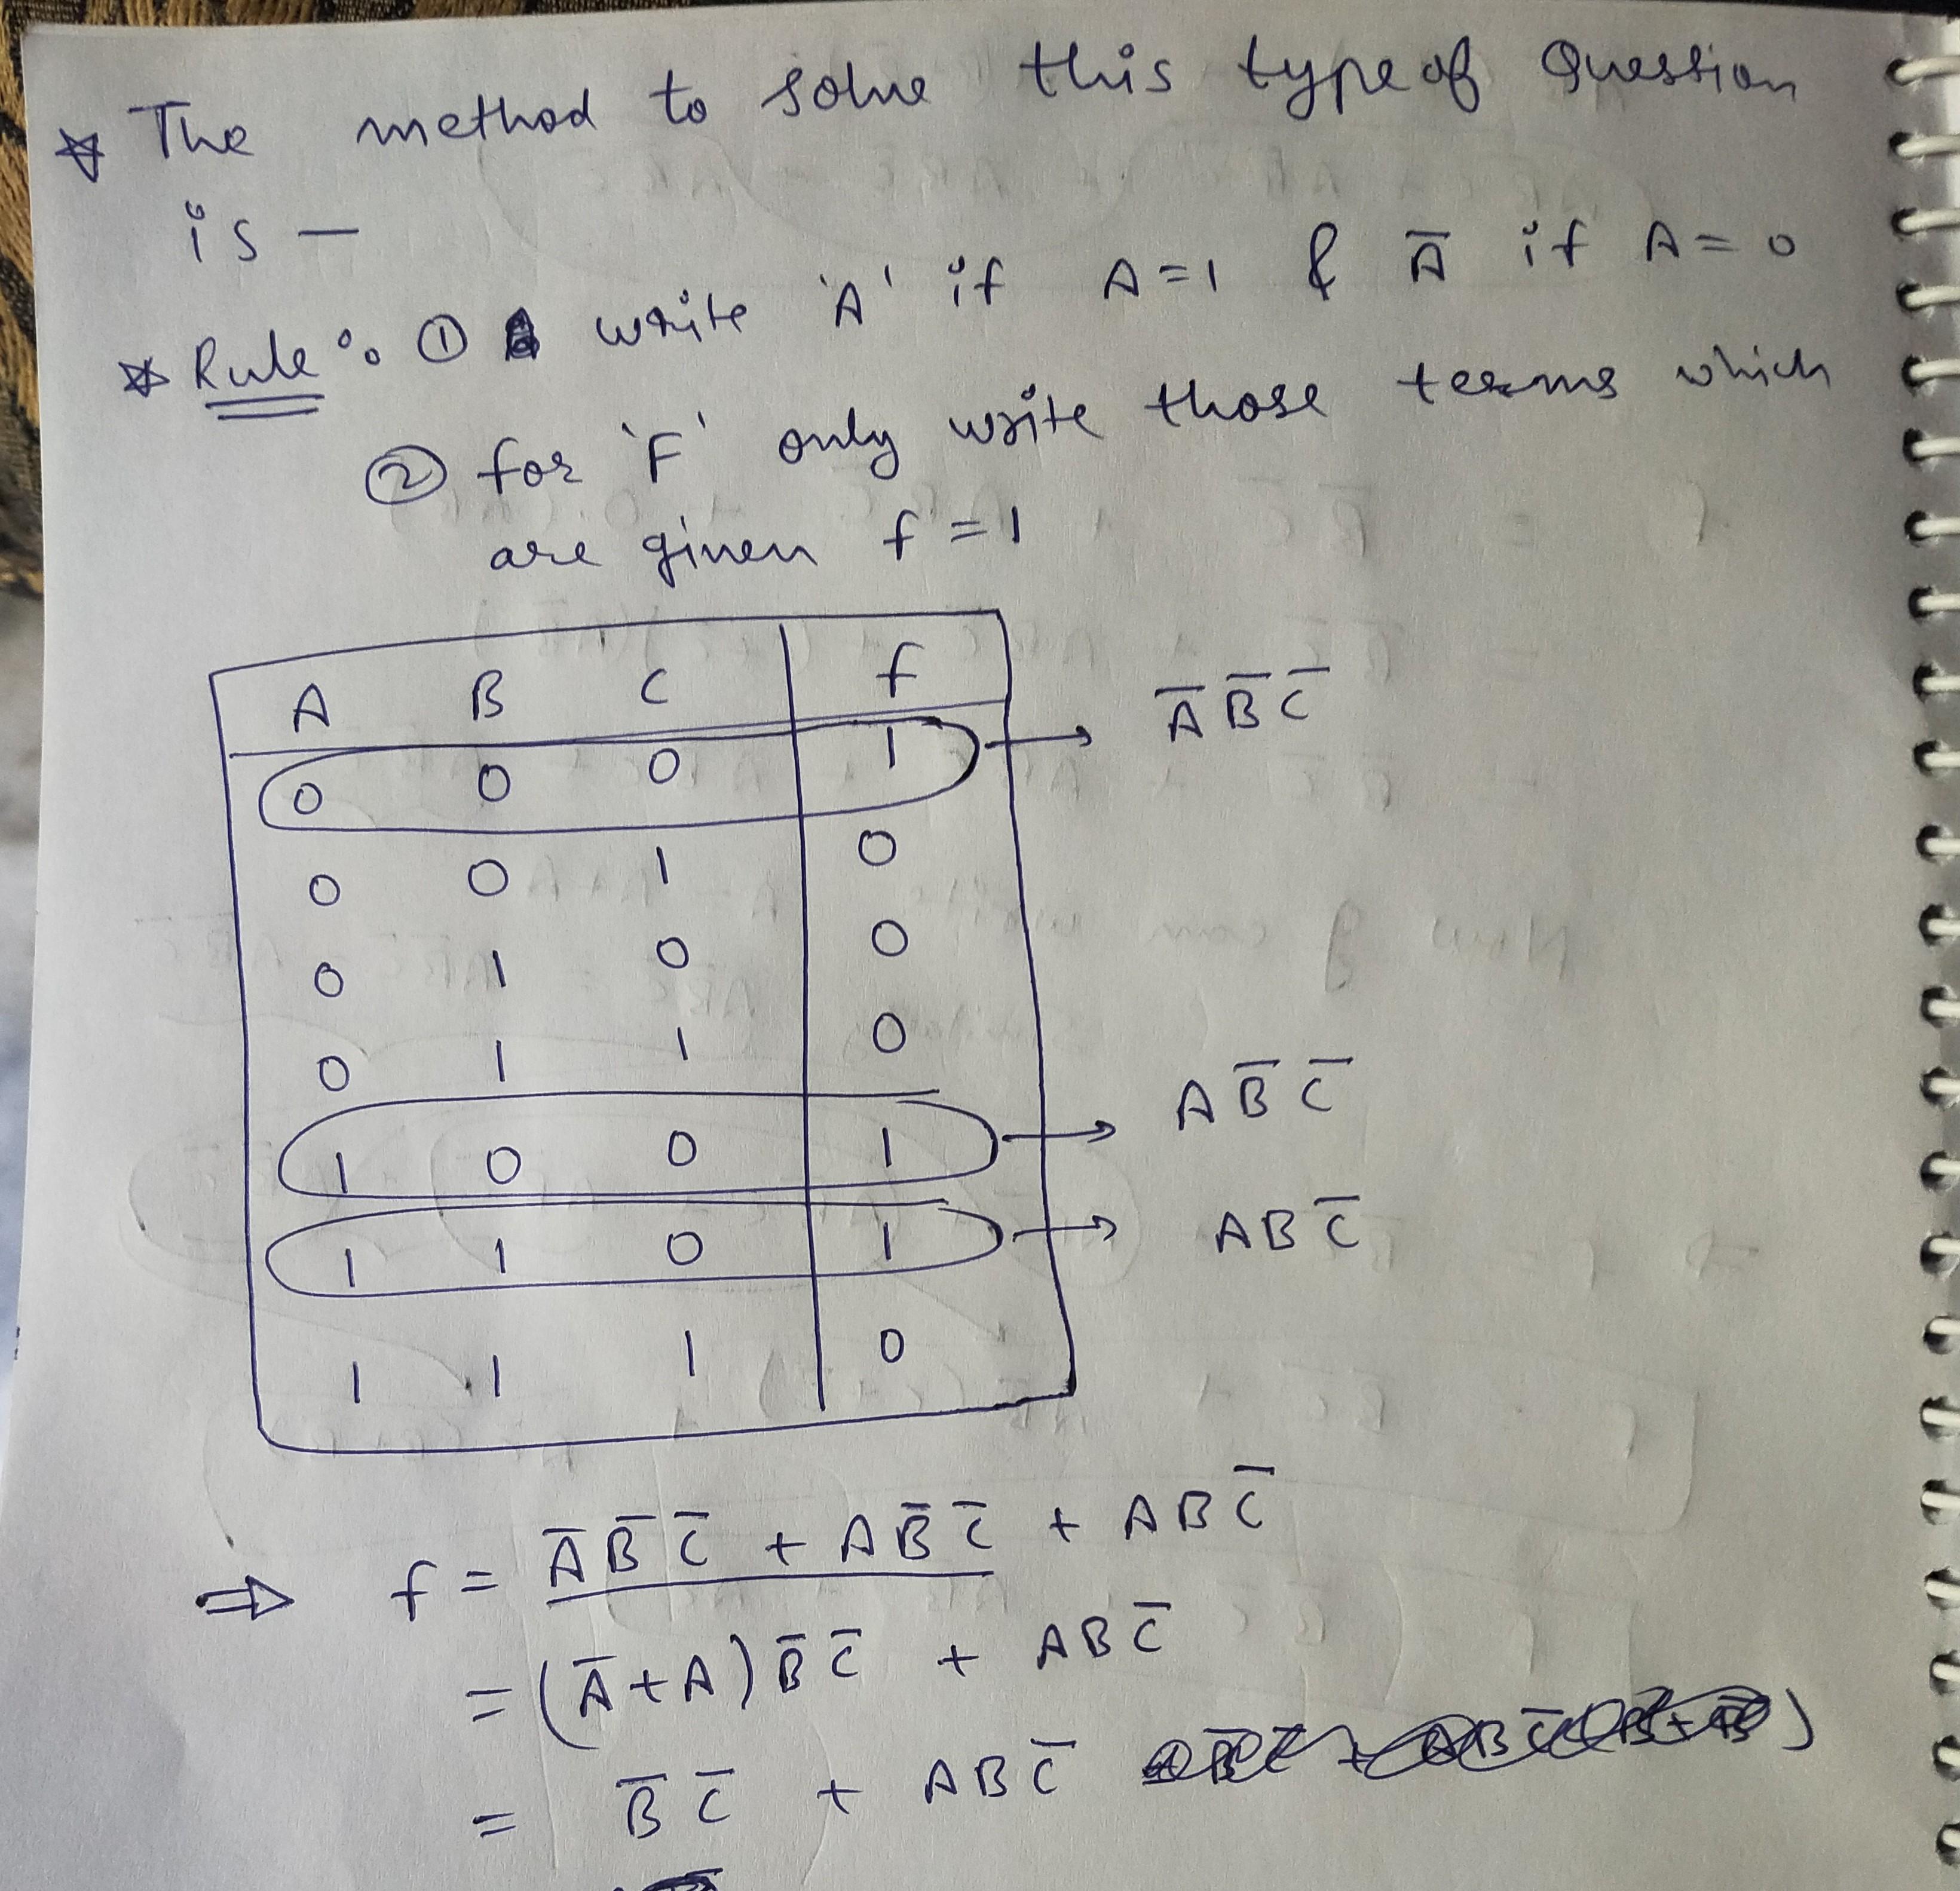 ☆ The method to solve this type of Question
is –
☆ Rule : ① write 'A' if A=1 & A̅ if A=0
② for 'F' only write those terms which
are given f=1
A B C f
0 0 0 1 → A̅ B̅ C̅
0 0 1 0
0 1 0 0
0 1 1 0
1 0 0 1 → A B̅ C̅
1 1 0 1 → A B C̅
1 1 1 0
⇒ f = A̅ B̅ C̅ + A B̅ C̅ + A B C̅
= (A̅ + A) B̅ C̅ + A B C̅
= B̅ C̅ + A B C̅